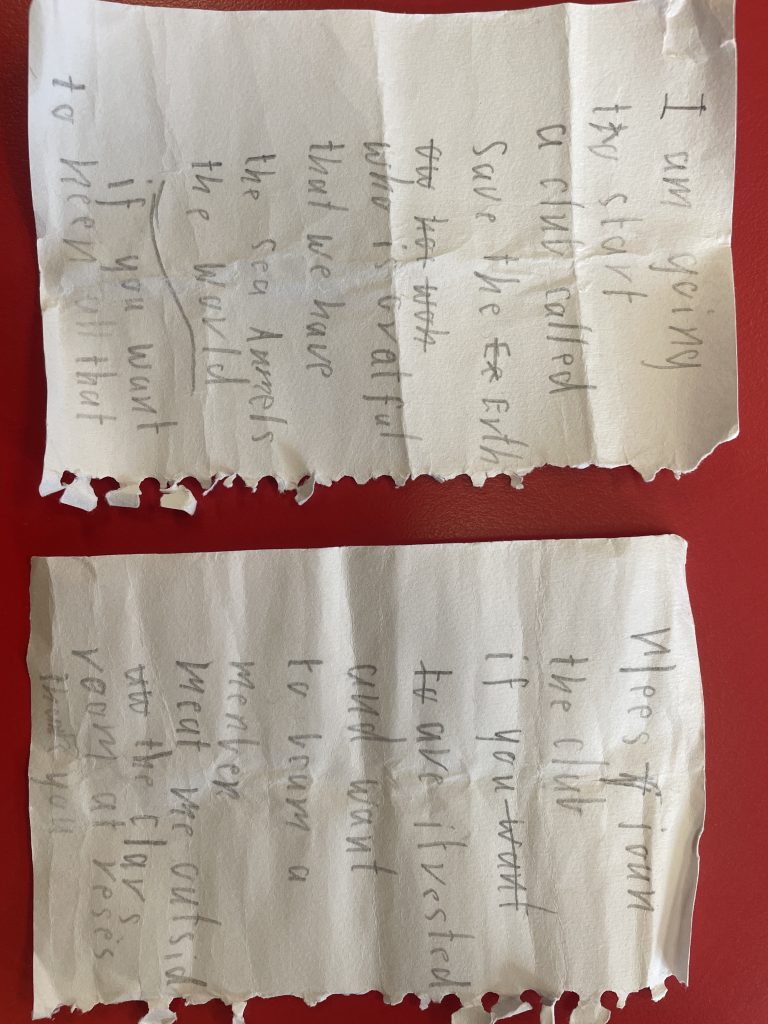 I am going
to start
a club called
Save the Erth
who is gratful
that we have
the sea Anmels
the world
if you want
to keep all that
Plees join
the club
if you want
to are itvested
and want
to beam a
member
meat me outsid
the Clars
room at reses
thank you